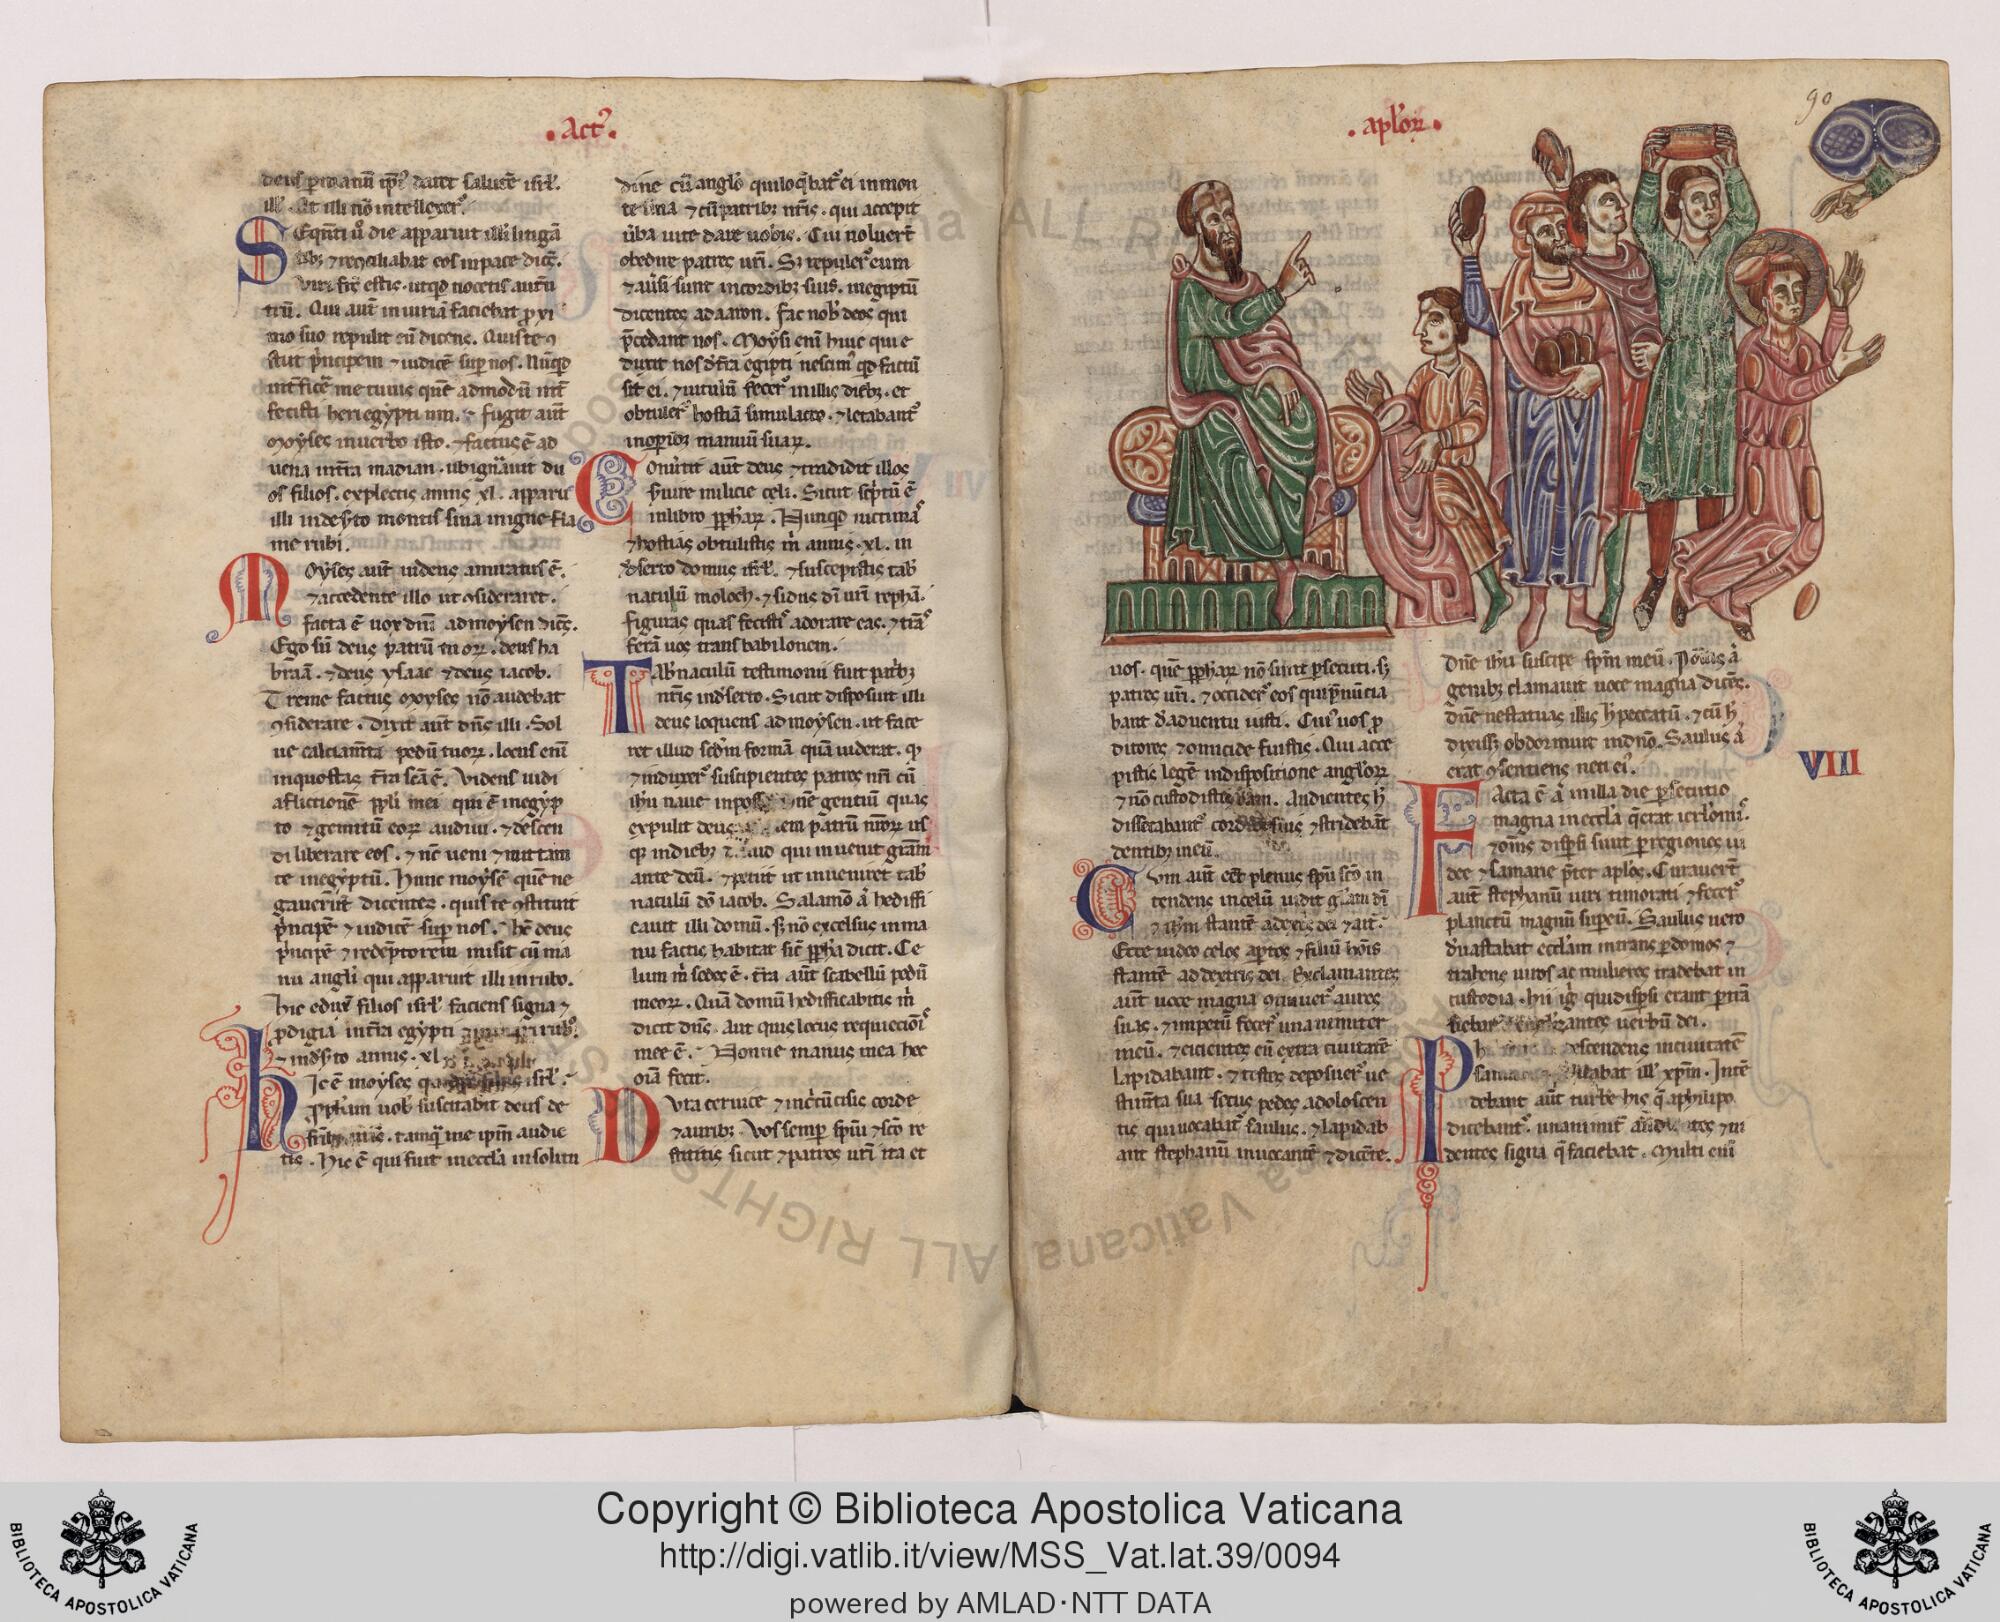 .Act᷒.
deus ꝑ manū ip̄i᷒ daret salutē isrl̄.
illi. At illi nō intellexer᷒.
SEquēti ū die apparuit illis litigā
tibꝫ ⁊ reꝯciliabat eos in pace dicēs.
Viri fr̄s estis. utqd nocetis alt̄ru
trū. Qui aut̄ iniuriā faciebat ꝓxi
mo suo repulit eū dicens. Quis te ꝯ
stituit p̄ncipem ⁊ iudicē sup nos. Nūqd
int̄ficē me tu uis quē admodū int̄
fecisti heri egyptium. ⁊ fugit aut̄
Moyses in uerbo isto. ⁊ factus ē ad
uena in t̄ra madian. ubi gn̄auit du
os filios. expletis annis xl. apparu
illi in des̄to montis sina in igne fla
me rubi.
MOyses aut̄ uidens amiratus ē.
⁊ accedente illo ut ꝯsideraret.
facta ē uox dn̄i ad moysen dicēs.
Ego sū deus patrū tuoꝝ. deus ha
brāā. ⁊ deus ysaac ⁊ deus iacob.
Treme factus moyses nō audebat
ꝯsiderare. Dixit aut̄ dn̄s illi. Sol
ue calciam̄ta pedū tuoꝝ. locus enī
in quo stas t̄ra sc̄a ē. Videns uidi
aflictionē ppl̄i mei qui ē in egyp
to ⁊ gemitū eoꝝ audiui. ⁊ descen
di liberare eos. ⁊ nc̄ ueni ⁊ mittam
te in egyptū. Hunc moysē quē ne
gauerūt dicentes. quis te ꝯstituit
p̄ncipē ⁊ iudicē sup nos. hc̄ deus
p̄ncipē ⁊ redēptorem misit cū ma
nu angl̄i qui apparuit illi in rubo.
Hic eduxˀ filios isrl̄ faciens signa ⁊
ꝓdigia in t̄ra egypti ⁊ in mari rub᷒.
⁊ in des̄to annis. xl.
HIc ē moyses qui dixit filiis isrl̄.
Ꝓph̄am uob̄ suscitabit deus de
fr̄ibꝫ ur̄is. tamq̄ me ip̄m audie
tis. Hic ē qui fuit in eccl̄a in solitu
dine cū angl̄o qui loq̄bat᷒ ei in mon
te sina ⁊ cū patribꝫ nr̄is. qui accepit
ūba uite dare uobis. Cui noluert̄
obedire patres ur̄i. Sꝫ repuler᷒ eum
⁊ aūsi sunt in cordibꝫ suis. in egiptū
dicentes ad aaron. fac nob̄ deos qui
p̄cedant nos. Moysi enī huic qui e
duxit nos d̄ t̄ra egipti nescim᷒ qd factū
sit ei. ⁊ uitulū fecer᷒ in illis diebꝫ. et
obtuler᷒ hostiā simulacro. ⁊ letabant᷒
in opibꝫ manuū suaꝝ.
COnūtit aut̄ deus ⁊ tradidit illos
s̄uire milicie celi. Sicut sc̄ptū ē
in libro ꝓph̄aꝝ. Nunqd uictimas
⁊ hostias obtulistis m̄ annis. xl. in
des̄to domus isrl̄. ⁊ suscepistis tab̄
naculū moloch. ⁊ sidus dī ur̄i repha.
figuras quas fecistis adorare eas. ⁊ trās
ferā uos trans babilonem.
TAb̄naculū testimonii fuit patribꝫ
nr̄is in des̄to. Sicut disposuit illi
deus loquens ad moysen. ut face
ret illud sc̄dm formā quā uiderat. qd
⁊ induxer᷒ suscipientes patres nr̄i cū
ihū naue in possessionē gentiū quas
expulit deus a facie patrū nr̄oꝝ us
qꝫ in diebꝫ dauid qui inuenit grām
ante deū. ⁊ petiit ut inueniret tab̄
naculū dō iacob. Salamō aut̄ hediffi
cauit illi domū. sꝫ nō excelsus in ma
nu factis habitat sic̄ ꝓph̄a dicit. Ce
lum m̄ sedes ē. t̄ra aut̄ scabellū pedū
meoꝝ. Quā domū hedifficabitis m̄
dicit dn̄s. aut quis locus requiecionis
mee ē. Nonne manus mea hec
oīa fecit.
DUra ceruice ⁊ inc̄ūcisis corde
⁊ auribꝫ. Vos semp spīui sc̄o re
stitistis sicut ⁊ patres ur̄i ita et
.apl̓oꝝ.
90
uos. quē ꝓph̄aꝝ nō sunt ꝑsecuti. sꝫ
patres ur̄i. ⁊ occider᷒ eos qui p̄nūcia
bant d̄ aduentu iusti. Cui᷒ uos ꝓ
ditores ⁊ omicide fuistis. Qui acce
pistis legē in dispositione angl̄oꝝ
⁊ nō custodistis eam. Audientes h̄
dissecabant᷒ cordibꝫ suis ⁊ stridebāt
dentibꝫ in eū.
CUm aut̄ eēt plenus spū sc̄o in
tendens in celū uidit gl̄am dī
⁊ ihm̄ stantē a dextris dei ⁊ ait.
Ecce uideo celos aptos ⁊ filiū hōis
stantē ad dextris dei. Exclamantes
aut̄ uoce magna ꝯtinuer᷒ aures
suas. ⁊ impetū fecer᷒ unanimiter
in eū. ⁊ eicientes eū extra ciuitatē
lapidabant. ⁊ testes deposuer᷒ ue
stim̄ta sua secus pedes adoloscen
tis qui uocabat᷒ saulus. ⁊ lapidab
ant stephanū inuocantē ⁊ dicētē.
Dn̄e ihū suscipe spm̄ meū. Positis aut̄
genibꝫ clamauit uoce magna dicēs.
Dn̄e ne statuas illis h̄ peccatū. ⁊ cū h̄
dixissꝫ obdormiuit in dn̄o. Saulus aut̄
erat ꝯsentiens neci ei᷒.
VIII
FActa ē aut̄ in illa die ꝑsecutio
magna in eccl̄a q̄ erat ierl̓omis.
⁊ om̄s dispsi sunt ꝑ regiones iu
dee ⁊ samarie p̄ter apl̓os. Curauert̄
aut̄ stephanū uiri timorati ⁊ fecer᷒
planctū magnū sup eū. Saulus uero
d̄uastabat eccl̄am intrans ꝑ domos ⁊
trahens uiros ac mulieres tradebat in
custodia. hii igr̄ qui dispsi erant ꝑtrās
siebant euangelizantes uerbū dei.
PHilippus aut̄ descendens in ciuitatē
samarie predicabat ill̓ xpm̄. Intē
debant aut̄ turbe his q̄ a philipo
dicebant᷒. unanimit̄ audientes ⁊ ui
dentes signa q̄ faciebat. Multi enī
Copyright © Biblioteca Apostolica Vaticana
http://digi.vatlib.it/view/MSS_Vat.lat.39/0094
powered by AMLAD·NTT DATA
BIBLIOTECA APOSTOLICA VATICANA
BIBLIOTECA APOSTOLICA VATICANA